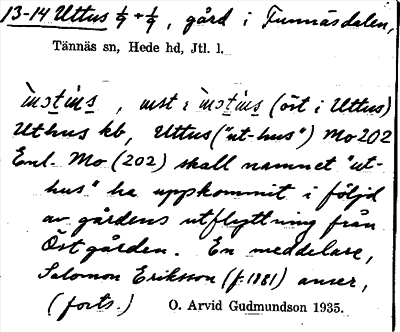 13-14 Uttus 1/9 + 1/9, gård i Funnäsdalen,
Tännäs sn, Hede hd, Jtl. l.
, mst i (öst i Uttus)
Uthus kb, Uttus ("ut-hus") Mo 202
Enl. Mo (202) skall namnet "ut-
hus" ha uppkommit i följd
av gårdens utflyttning från
Östgården. En meddelare,
Salomon Eriksson (f. 1881) anser,
(forts.) O. Arvid Gudmundson 1935.